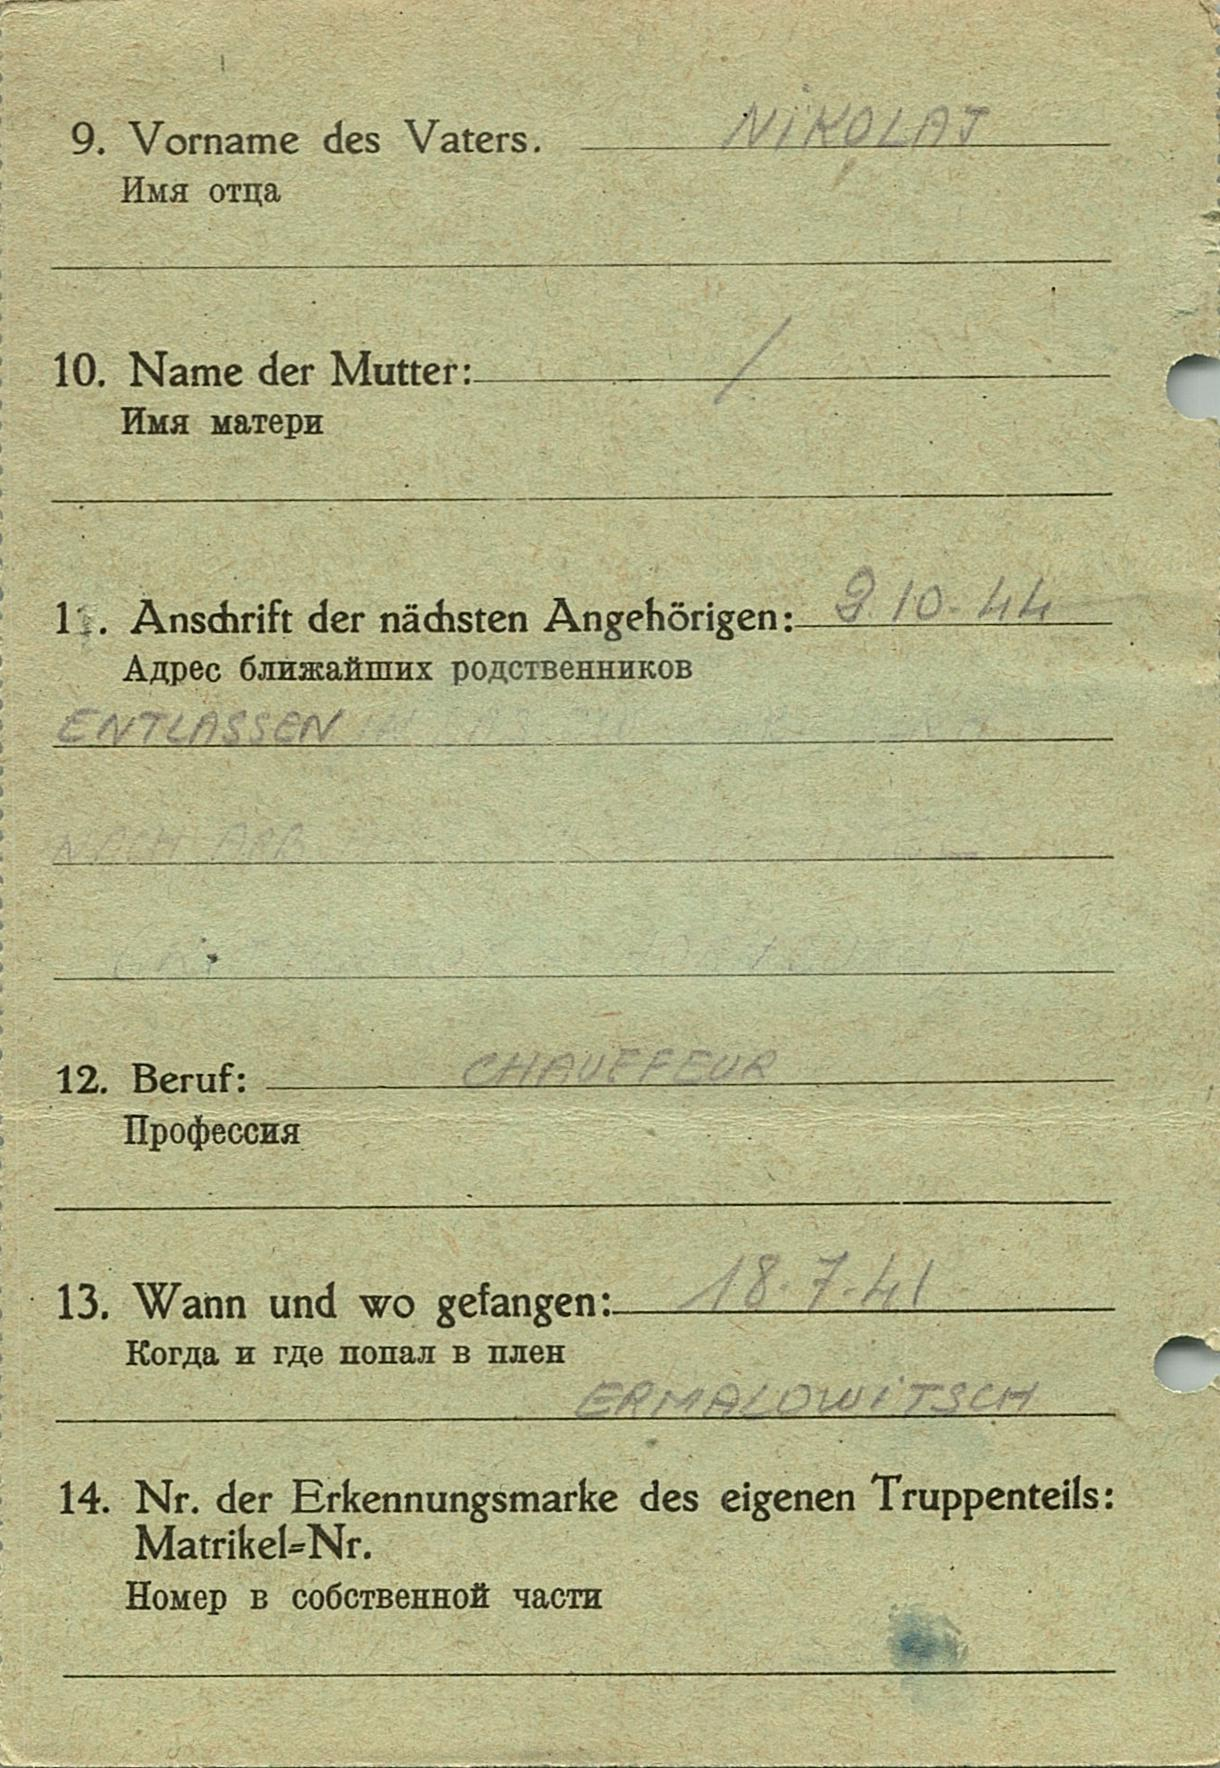 9. Vorname des Vaters. NIKOLAJ
Имя отца
10. Name der Mutter: /
Имя матери
11. Anschrift der nächsten Angehörigen: 9.10.44
Адрес ближайших родственников
ENTLASSEN IN DAS
NACH ARB
12. Beruf: CHAUFFEUR
Профессия
13. Wann und wo gefangen: 18.7.41
Когда и где попал в плен
ERMALOWITSCH
14. Nr. der Erkennungsmarke des eigenen Truppenteils:
Matrikel-Nr.
Номер в собственной части